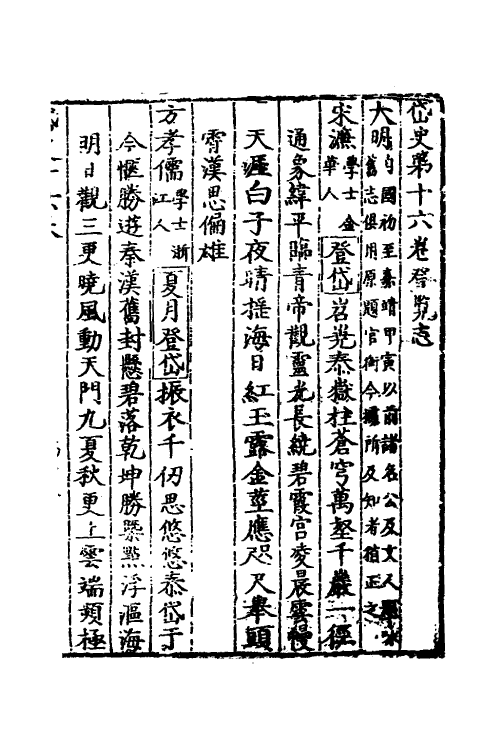 岱史第十六卷登覽志
大明自國初至嘉靖甲寅以前諸名公及文人題咏
舊志俱用原題官銜今據所及知者猶正之
宋濂學士金華人登岱岩岩泰嶽拄蒼穹萬壑千巖一徑
通象緯平臨青帝觀靈光長繞碧霞宮凌晨雲幔
天涯白子夜晴搖海日紅玉露金莖應咫尺舉頭
霄漢思偏雄
方孝儒學士浙江人夏月登岱振衣千仞思悠悠泰岱于
今愜勝遊秦漢舊封懸碧落乾坤勝槩點浮漚海
明日觀三更曉風動天門九夏秋更上雲端頻極